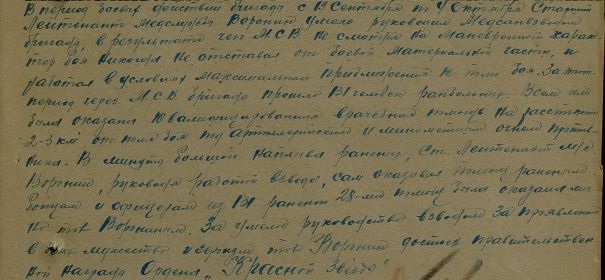 В период боевых действий бригады с 19 сентября по 4 октября Старший
Лейтенант Медслужбы Воронин умело руководил Медсанвзводом
бригады, в результате чего МСВ не смотря на маневренный харак-
тер боя никогда не отставал от боевой материальной части, и
работал в условиях максимального приближения к полю боя. За этот
период через МСВ бригады прошло 131 человек раненых. Всем им
была оказана квалифицированная врачебная помощь на расстоянии
2-3 км от поля боя под артиллерийским и минометным огнем против-
ника. В минуты большой наплыва раненых, ст. Лейтенант м/с
Воронин, руководя работой взвода, сам оказывал помощь раненым
бойцам и офицерам из 131 раненых 28-ми помощь была оказана лич-
но тов Ворониным. За умелое руководство взводом за проявленные
в боях мужество и тов Воронин достоин правительствен-
ной награды Ордена „Красной Звезда"